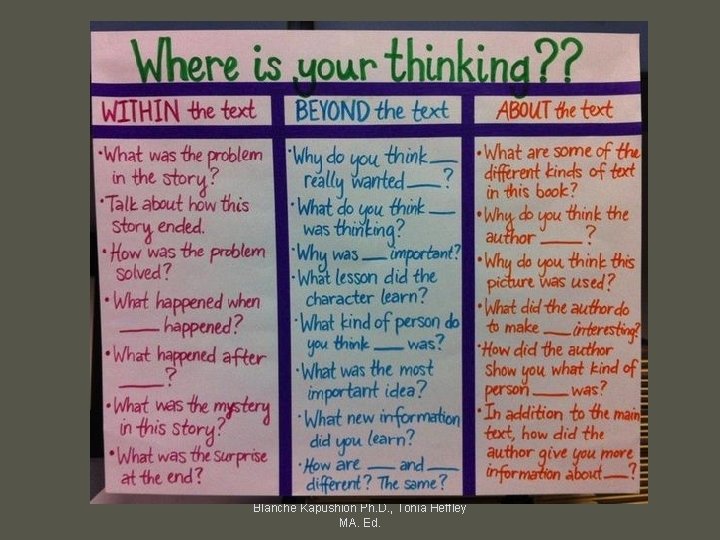 Where is your thinking??
WITHIN the text
•What was the problem
in the story?
•Talk about how this
story ended.
•How was the problem
solved?
•What happened when
____ happened?
•What happened after
____?
•What was the mystery
in this story?
•What was the surprise
at the end?
BEYOND the text
•Why do you think ___
really wanted ___?
•What do you think ___
was thinking?
•Why was ___ important?
•What lesson did the
character learn?
•What kind of person do
you think ___ was?
•What was the most
important idea?
•What new information
did you learn?
•How are ___ and ___
different? The same?
ABOUT the text
•What are some of the
different kinds of text
in this book?
•Why do you think the
author ____?
•Why do you think this
picture was used?
•What did the author do
to make ___ interesting?
•How did the author
show you what kind of
person ____ was?
•In addition to the main
text, how did the
author give you more
information about ___?
Blanche Kapushion Ph.D., Tonia Heffley
MA. Ed.